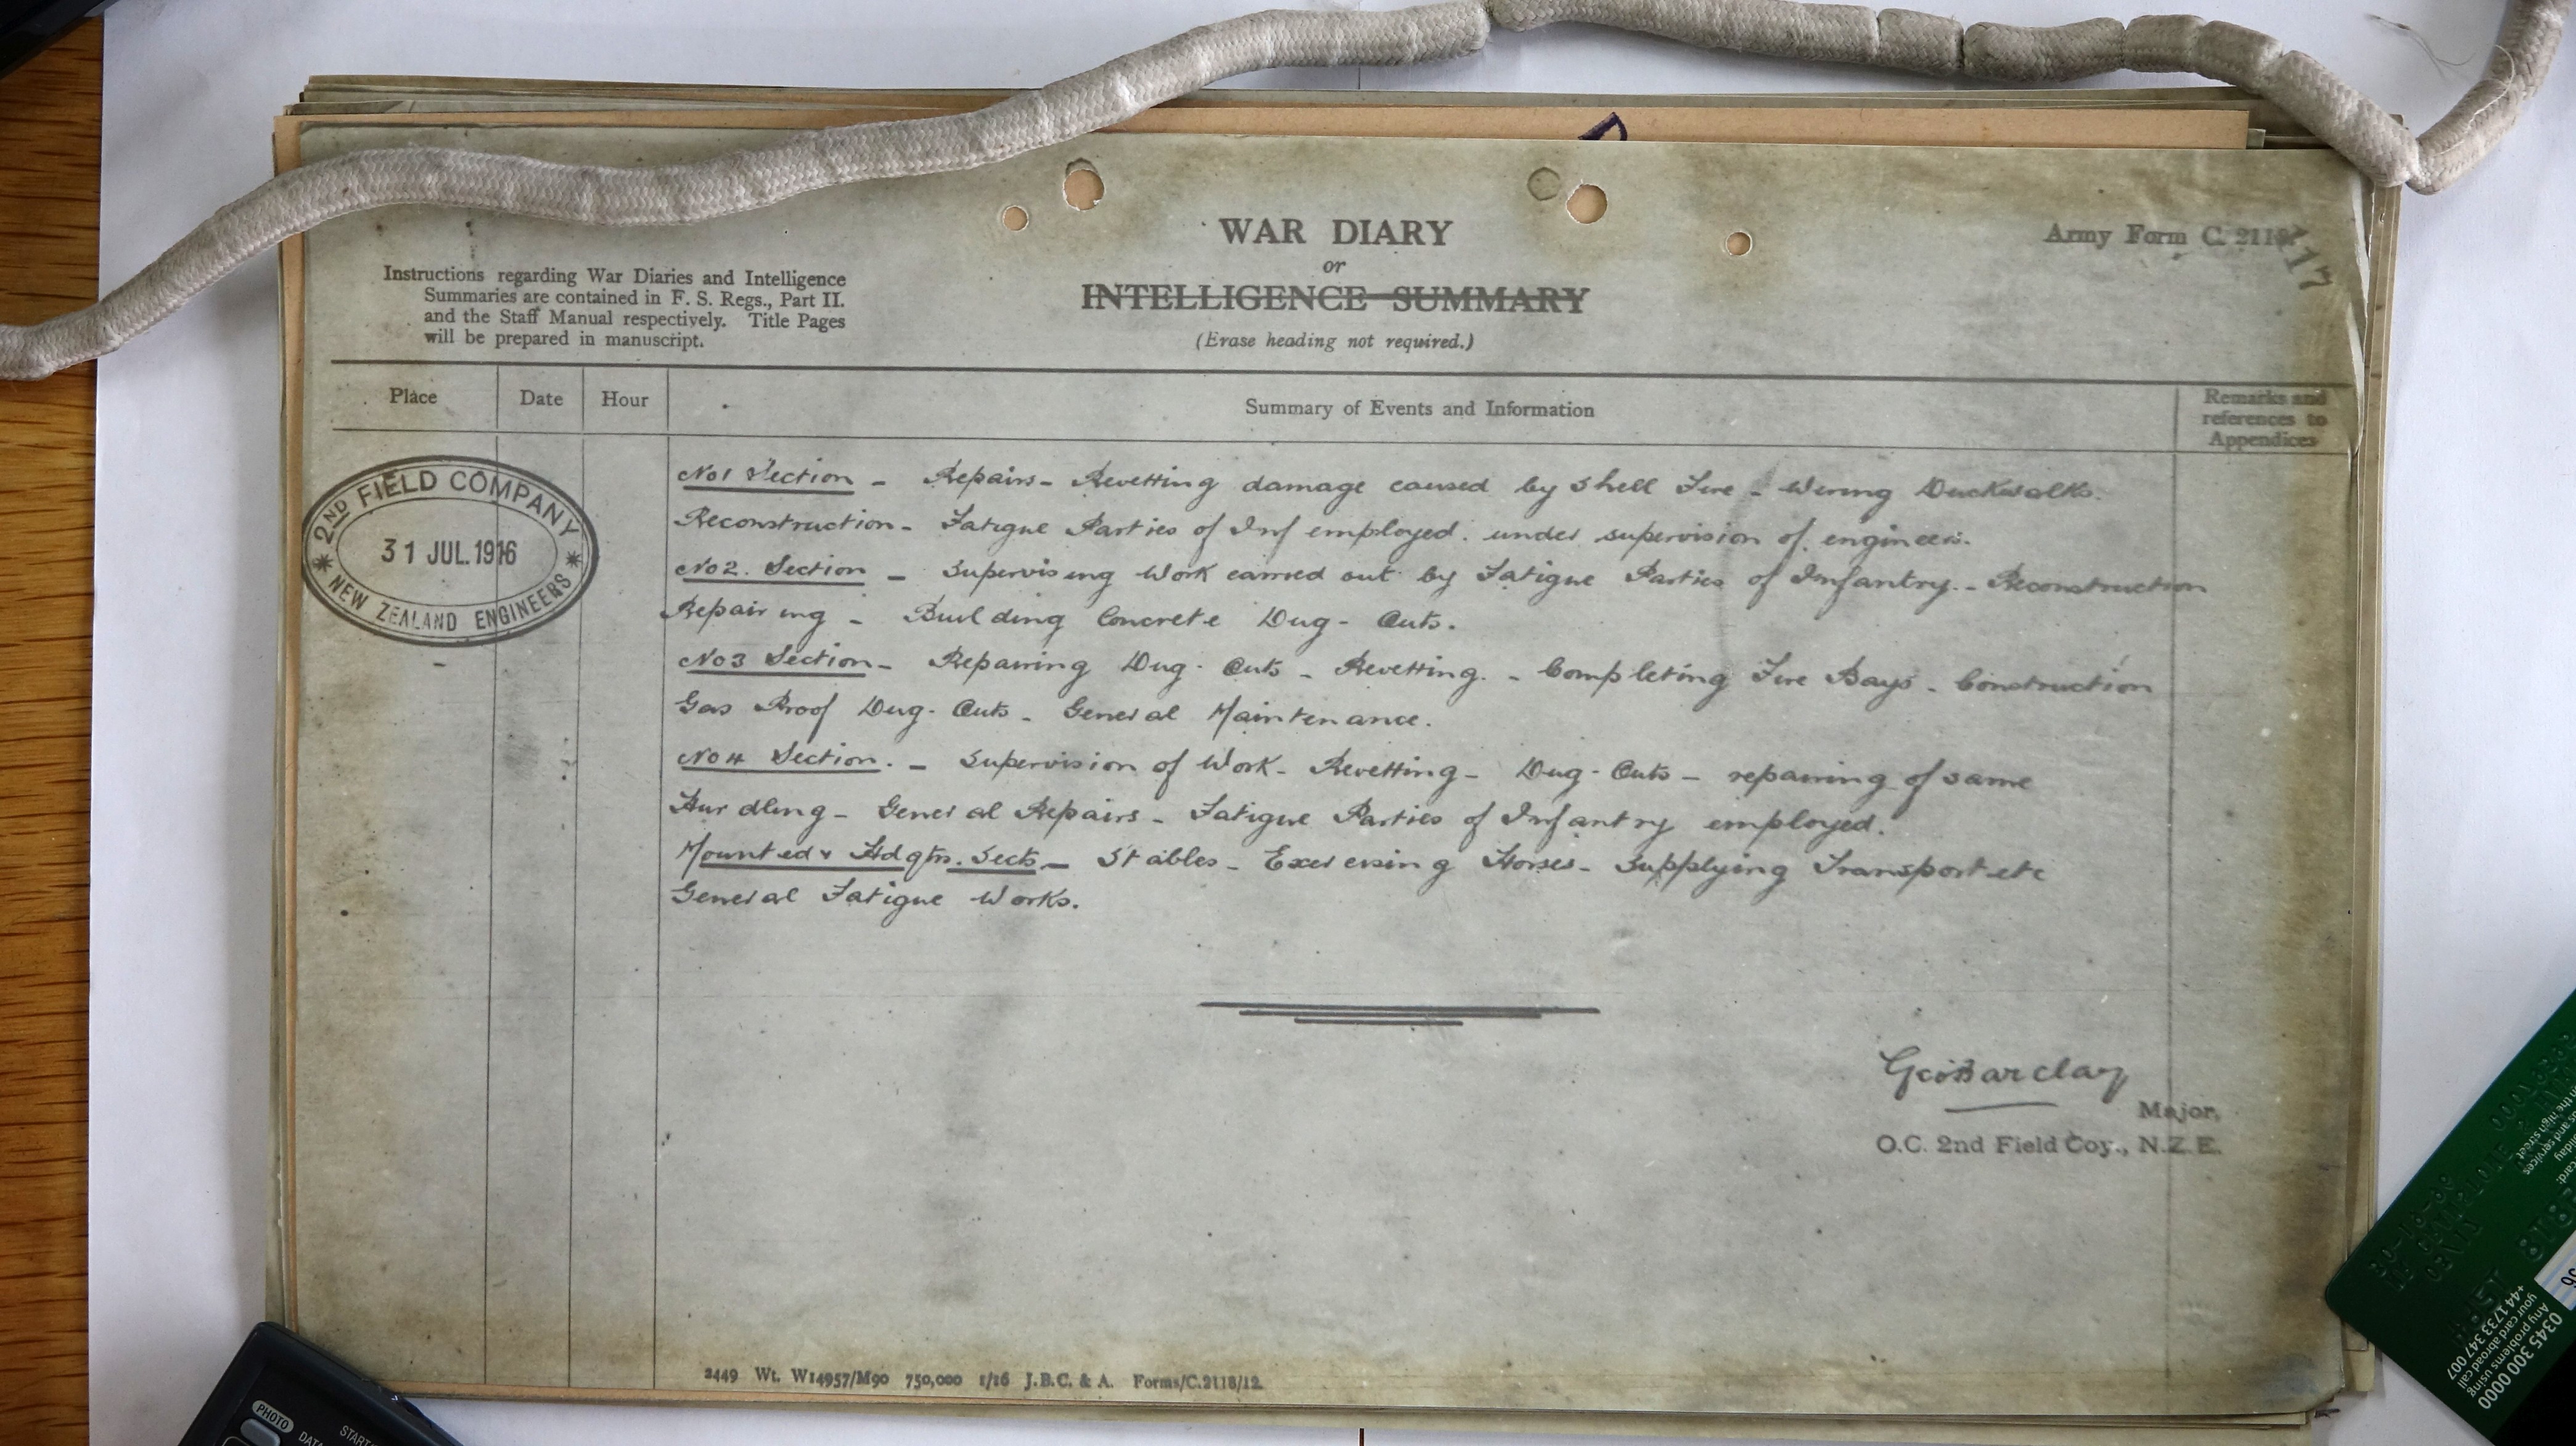 WAR DIARY
or
INTELLIGENCE SUMMARY
(Erase heading not required.)
Army Form C. 2118.
Instructions regarding War Diaries and Intelligence
Summaries are contained in F. S. Regs., Part II.
and the Staff Manual respectively. Title Pages
will be prepared in manuscript.
Place
Date
Hour
Summary of Events and Information
Remarks and
references to
Appendices
2ND FIELD COMPANY
31 JUL. 1916
NEW ZEALAND ENGINEERS
No1 Section - Repairs - Revetting damage caused by Shell Fire - Wiring Duckwalks.
Reconstruction - Fatigue Parties of Inf employed. under supervision of engineers.
No2. Section - Supervising Work carried out by Fatigue Parties of Infantry. - Reconstruction
Repairing - Building Concrete Dug-Outs.
No3 Section - Repairing Dug-Outs - Revetting. - Completing Fire Bays - Construction
Gas Proof Dug-Outs - General Maintenance.
No4 Section. - Supervision of Work - Revetting - Dug-Outs - repairing of same
Hurdling - General Repairs - Fatigue Parties of Infantry employed.
Mounted & Hdqtrs. Sects - Stables - Exercising Horses - Supplying Transport etc
General Fatigue Works.
Geo Barclay
Major,
O.C. 2nd Field Coy., N.Z.E.
2449 Wt. W14957/M90 750,000 1/16 J.B.C. & A. Forms/C.2118/12.
PHOTO
DATA
START
0345 300 0000
Any problems using
your card abroad call
+44 1733 347 007